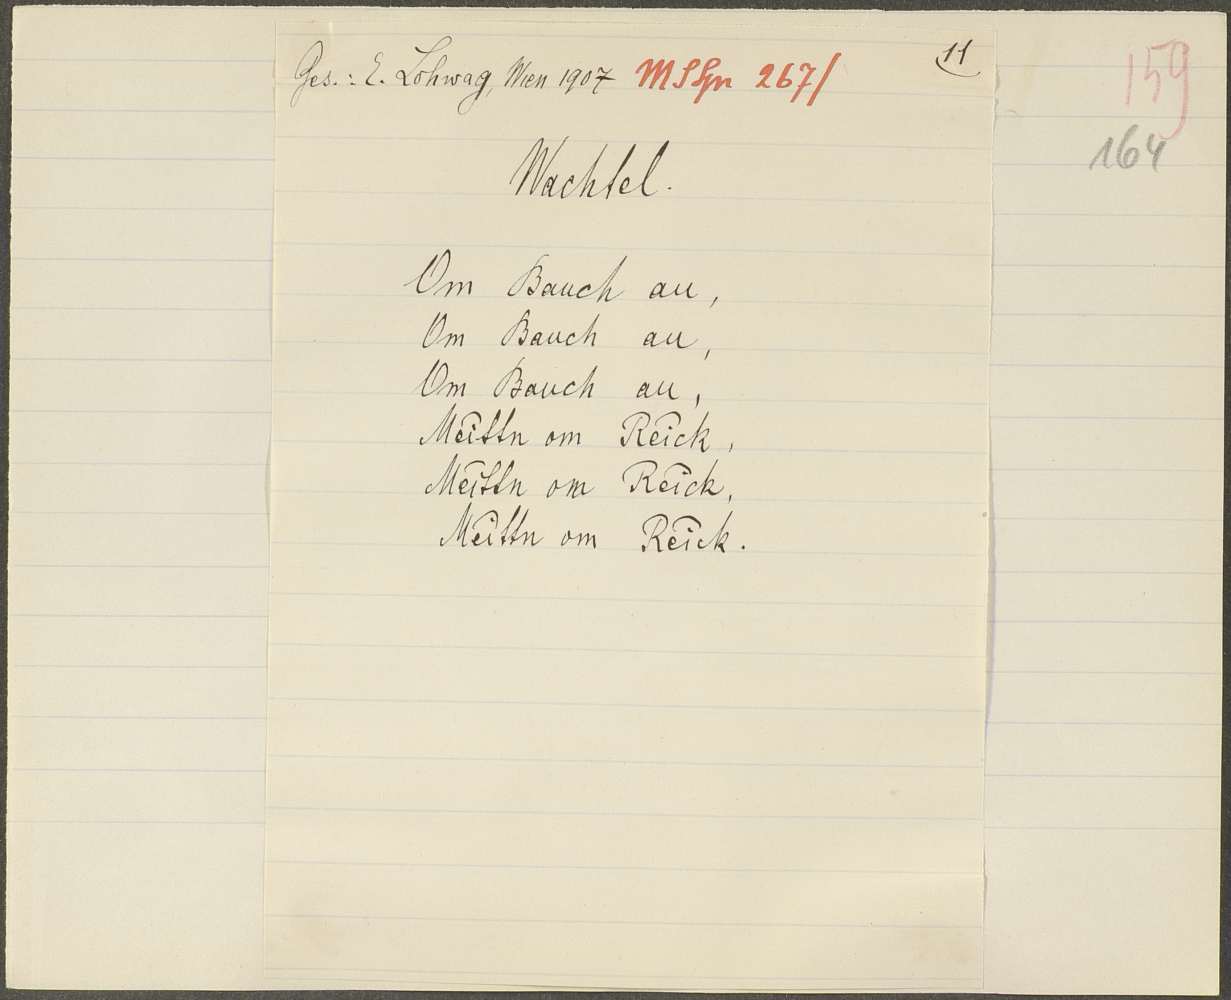 Ges.: E. Lohwag, Wien 1907 MSSpr 267/ 11
159
164
Wachtel.
Om Bauch au,
Om Bauch au,
Om Bauch au,
Meittn om Reick,
Meittn om Reick,
Meittn om Reick.